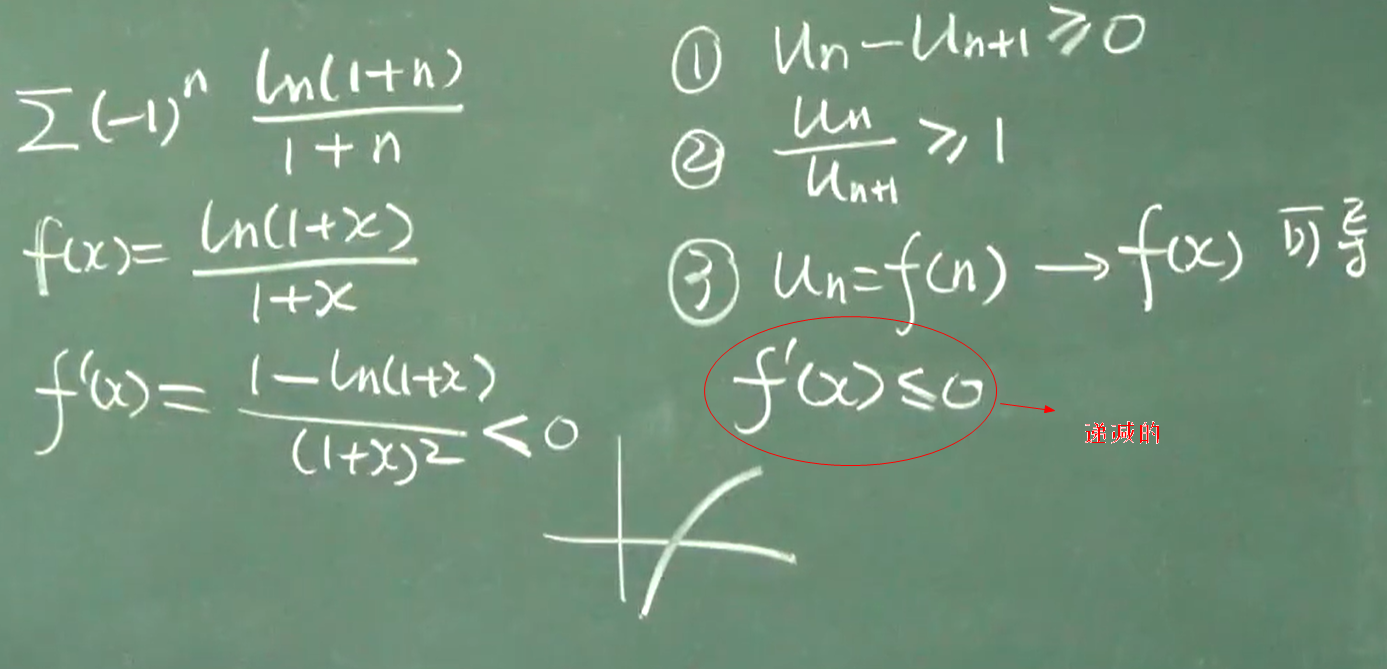 ∑(-1)^n ln(1+n)/(1+n)
f(x)= ln(1+x)/(1+x)
f'(x)= (1-ln(1+x))/(1+x)² < 0
① Un-Un+1≥0
② Un/Un+1 ≥1
③ Un=f(n)→f(x) 可导
f'(x)≤0
递减的